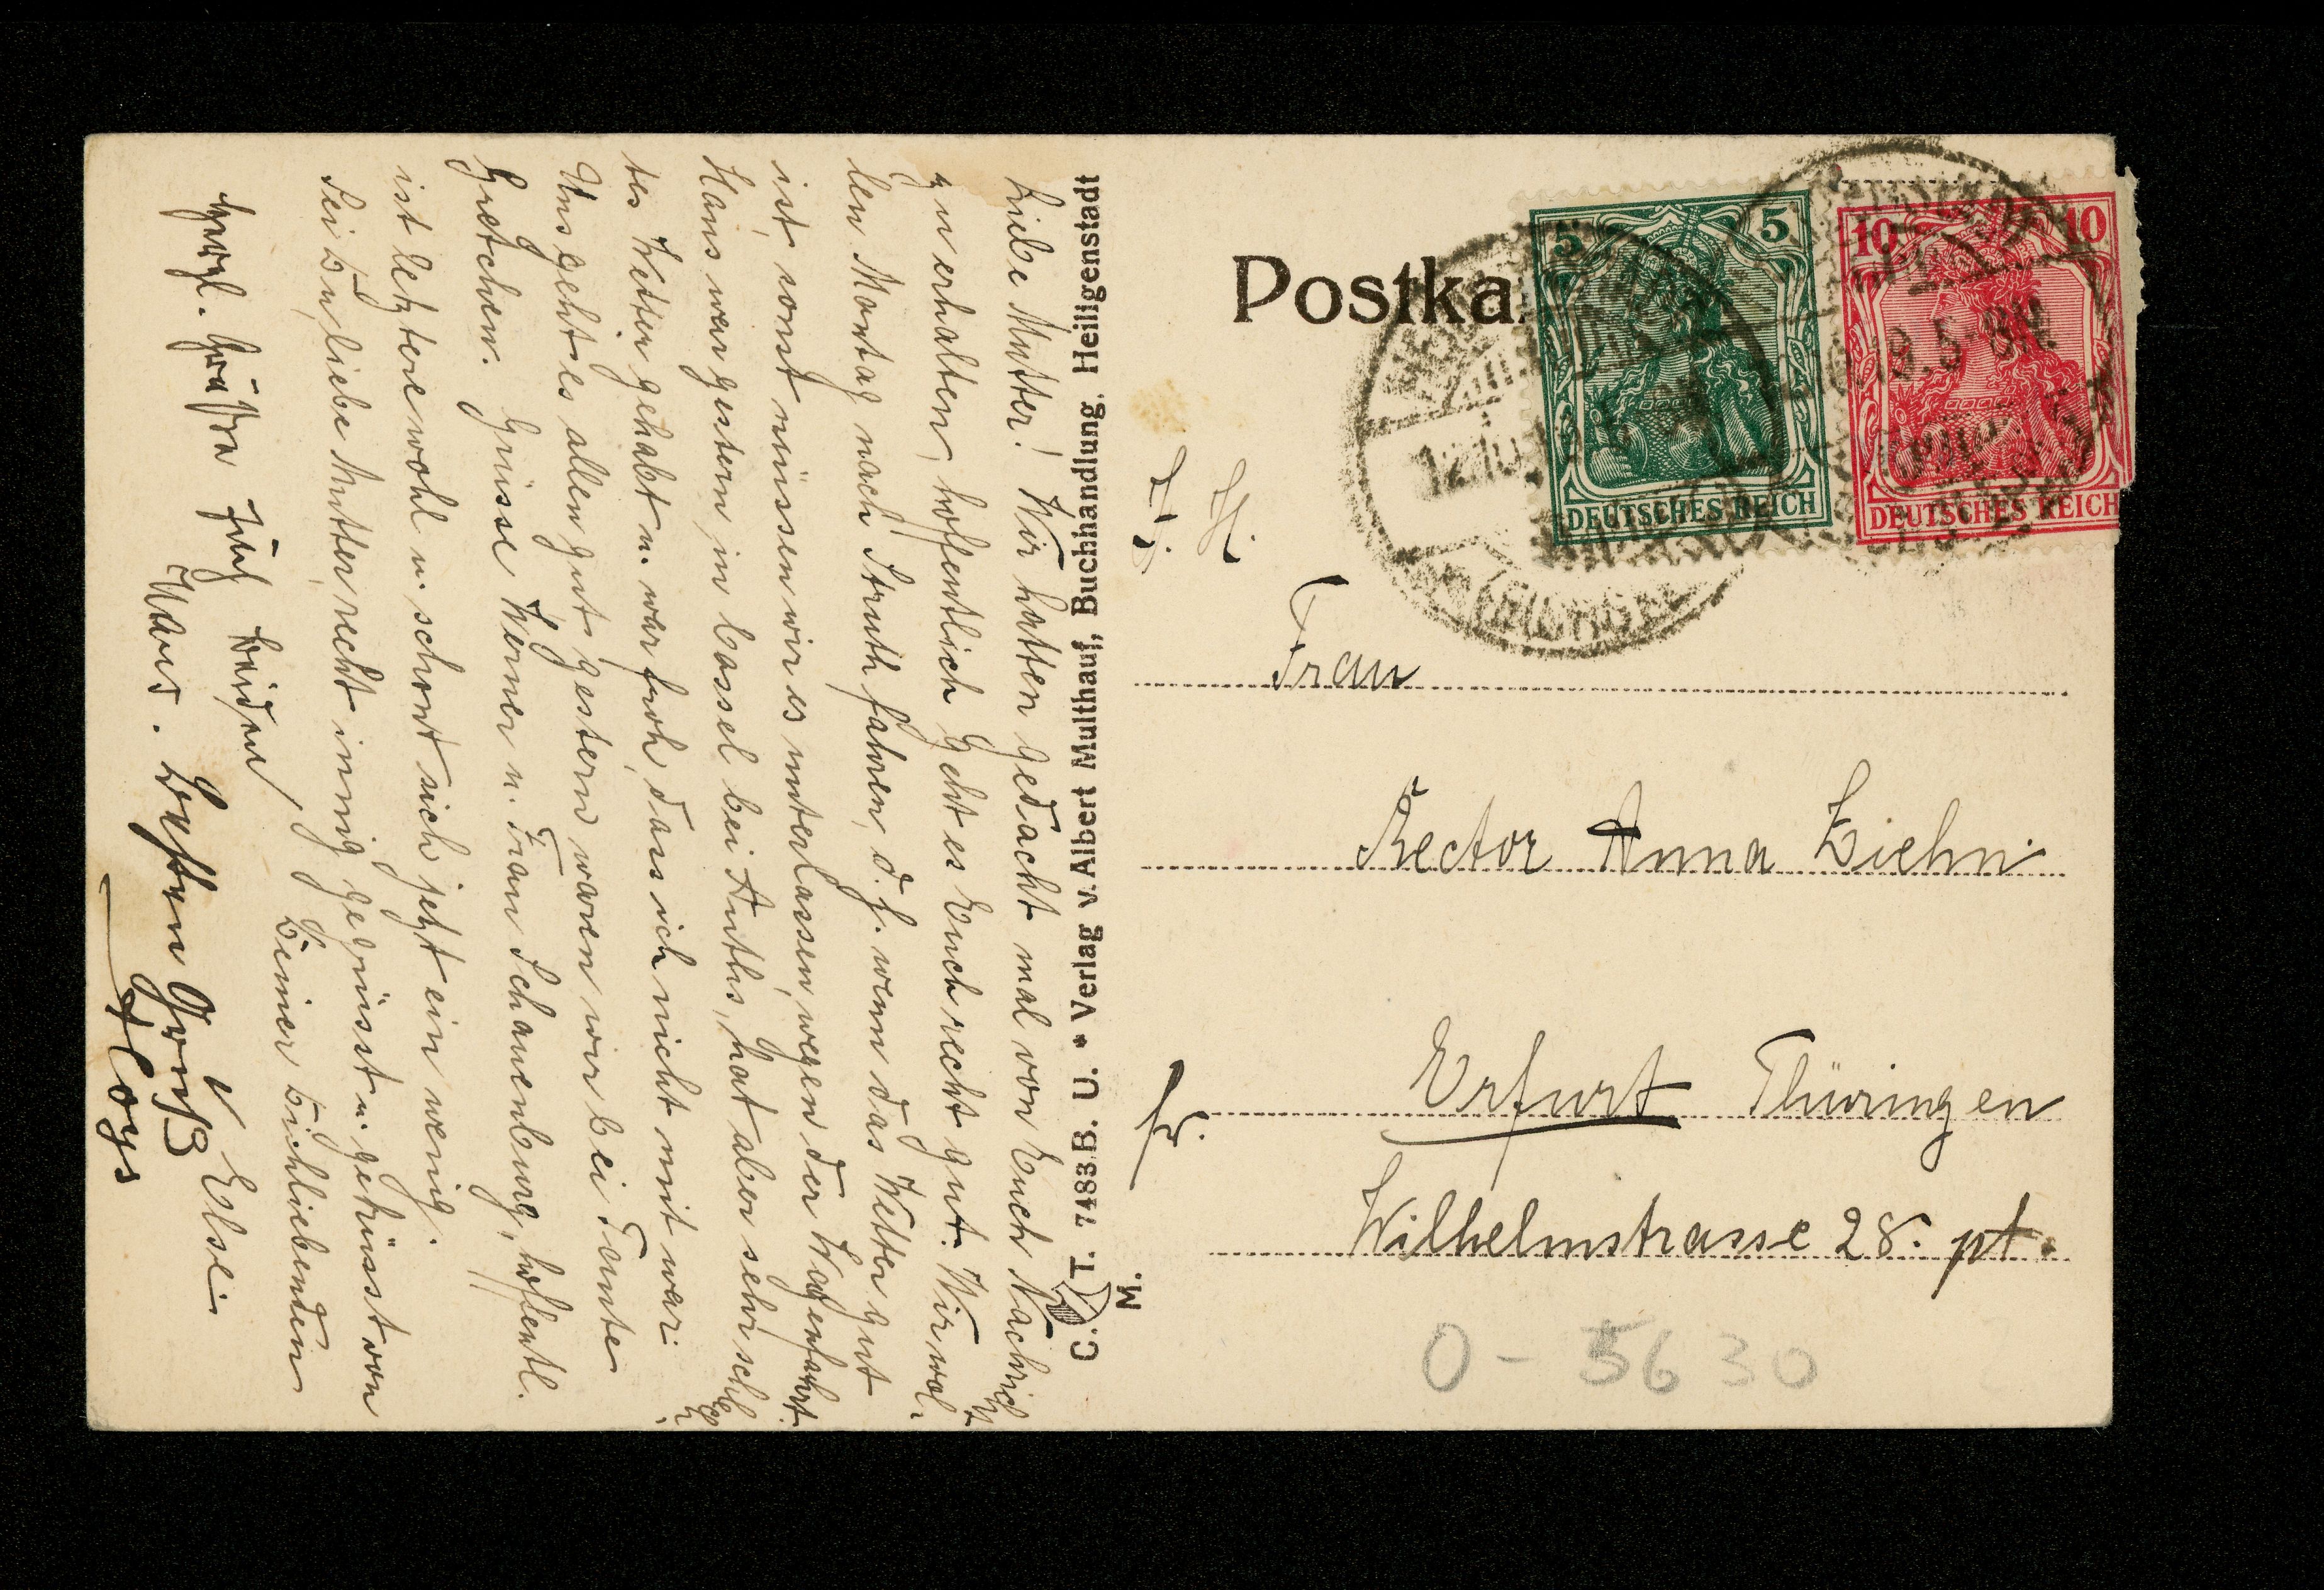 Liebe Mutter! Wir hatten gedacht mal von Euch Nachricht
zu erhalten, hoffentlich geht es Euch recht gut. Wir wol-
len Montag nach Struth fahren, d. h. wenn das Wetter gut
ist, sonst müssen wir es unterlassen, wegen der Wagenfahrt.
Hans war gestern in Cassel bei Auths, hat aber sehr schlech-
tes Wetter gehabt u. war froh, dass ich nicht mit war.
Uns geht es allen gut, gestern waren wir bei Tante
Gretchen. Grüsse Werner u. Frau Schauenburg, hoffentl.
ist letztere wohl u. schont sich jetzt ein wenig.
Sei Du, liebe Mutter, recht innig gegrüsst u. geküsst von
Deiner Dich liebenden
Else.
Herzl. Grüße Euch beiden
Hans.
Besten Gruß
Postka
5 5
DEUTSCHES REICH
10 10
DEUTSCHES REICH
Frau
Rector Anna Ziehn
Erfurt Thüringen
fr.
Wilhelmstrasse 28. pt.
0-5630
C. T. 7483 B. U. * Verlag v. Albert Multhauf, Buchhandlung, Heiligenstadt
M.